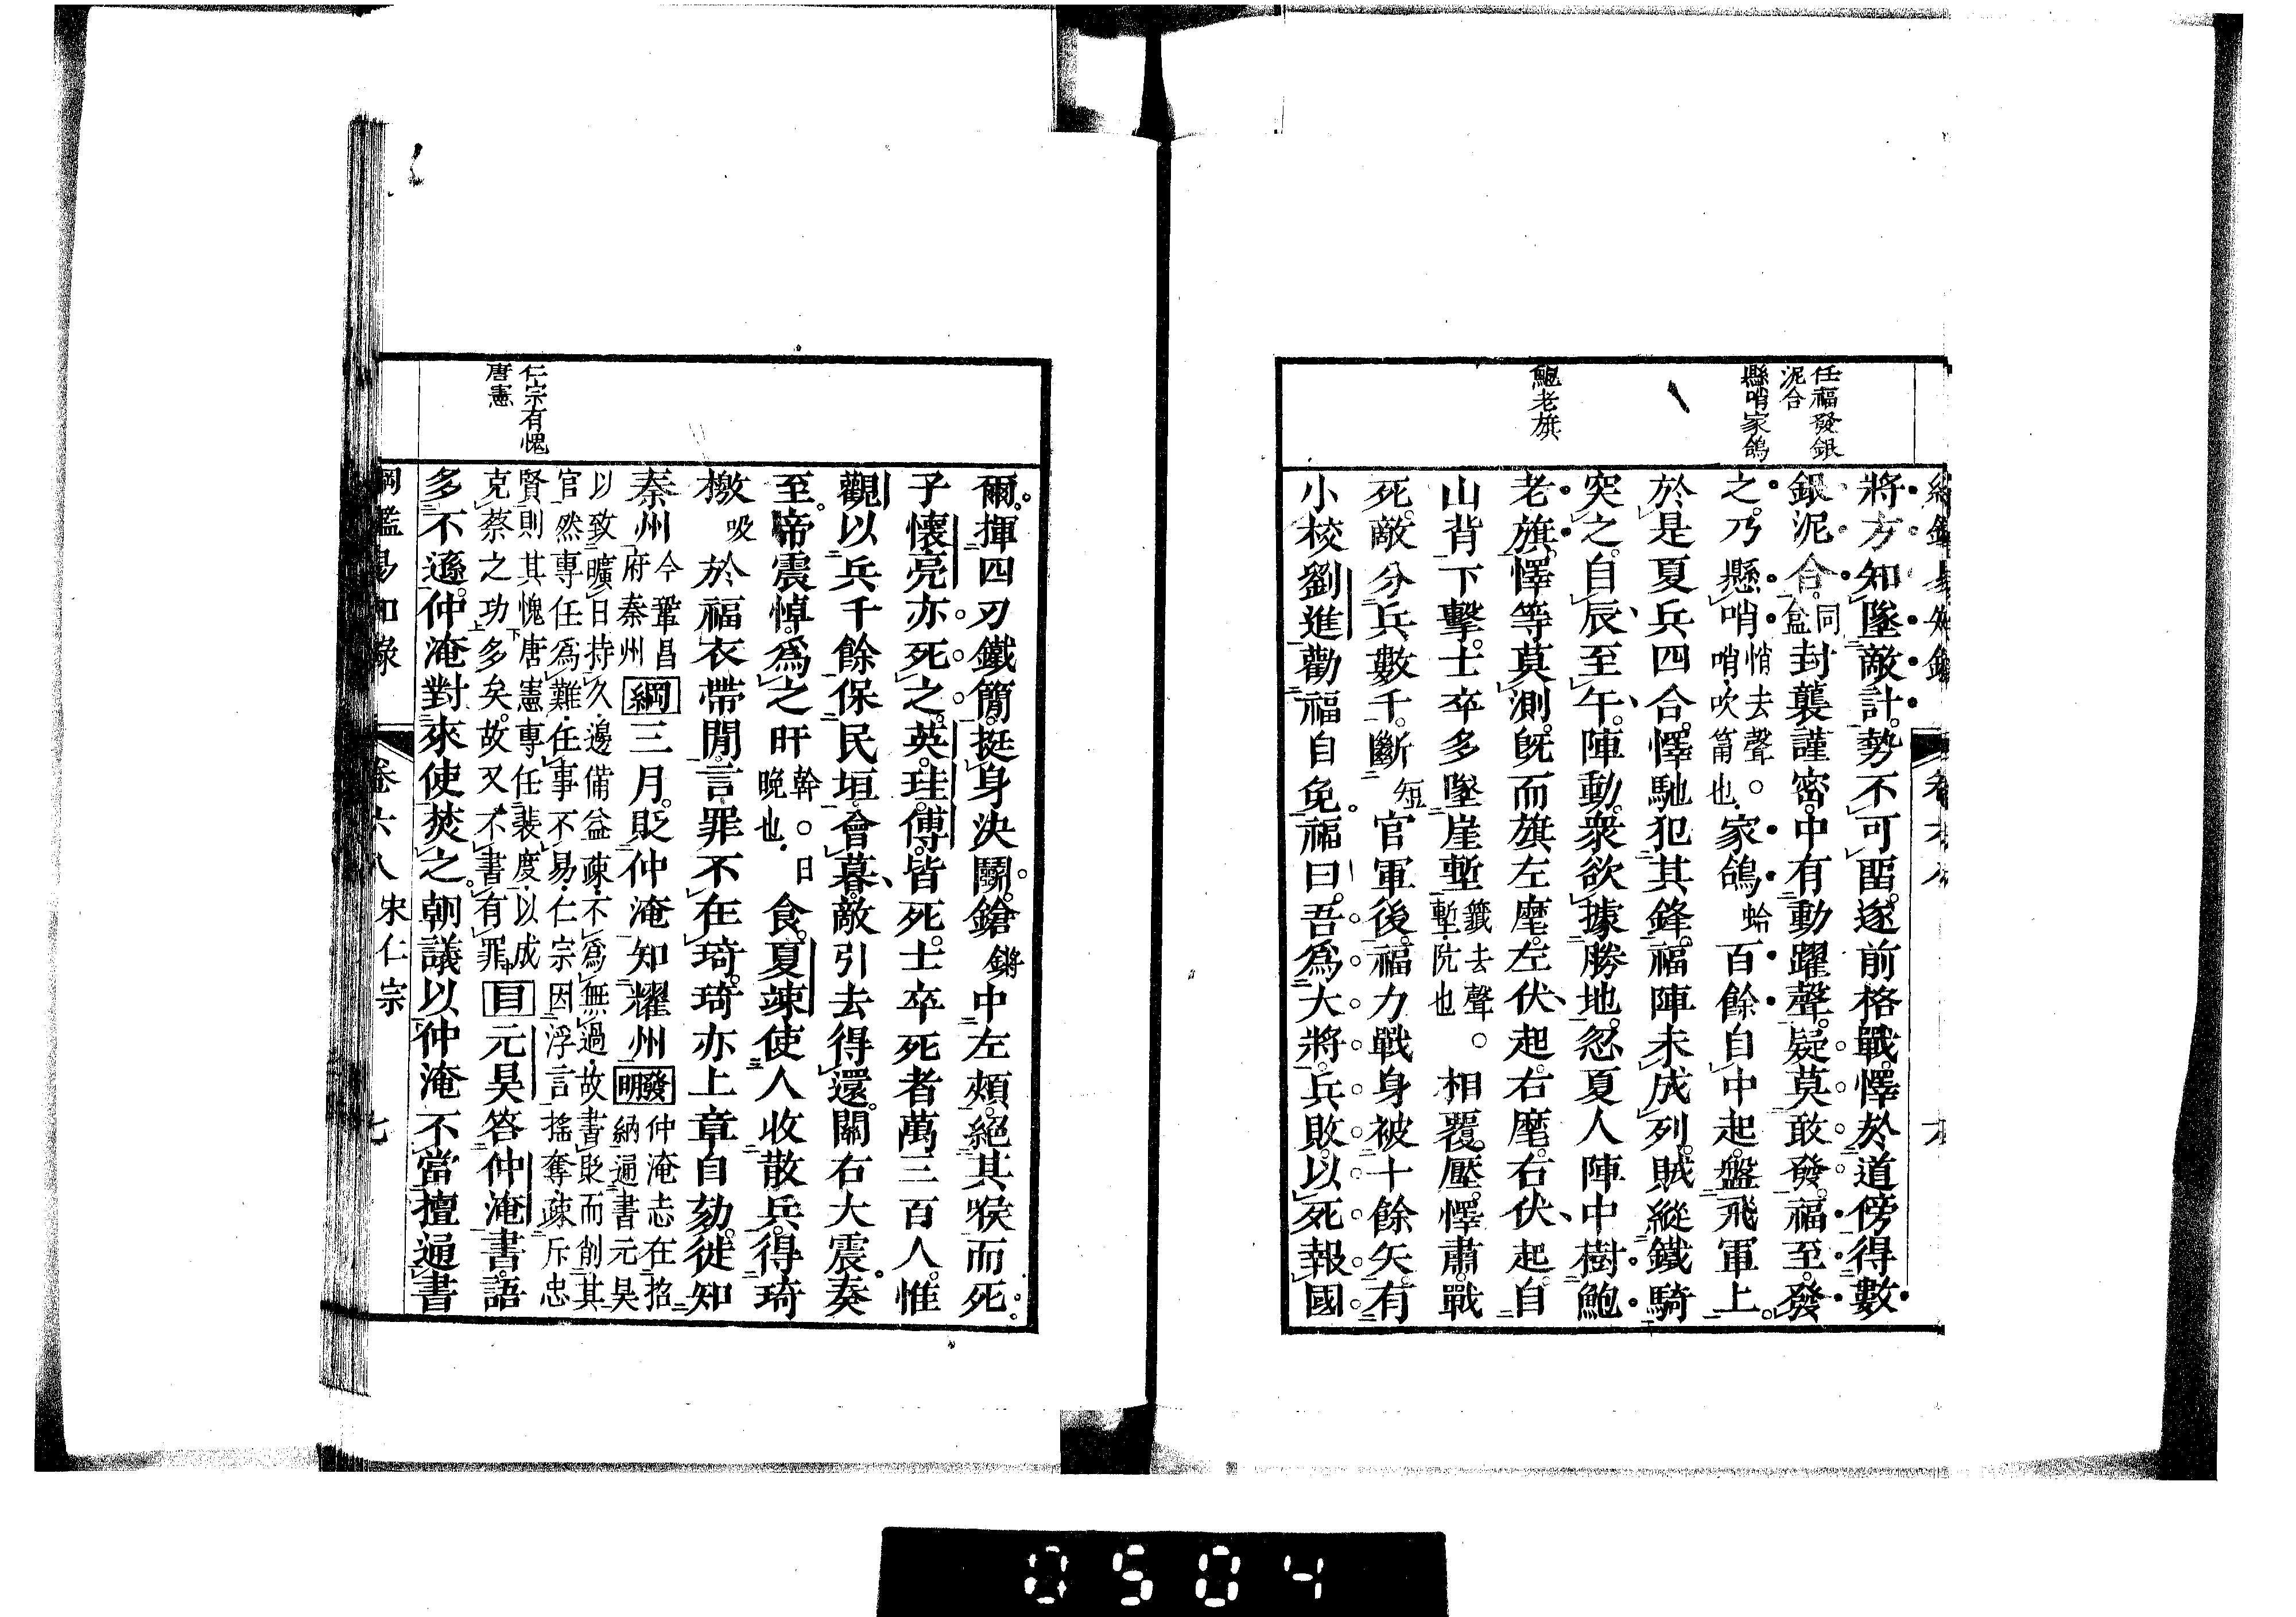 任福發銀
泥合
懸哨家鴿
鮑老旗
將方知墜敵計。勢不可畱。遂前格戰。懌於道傍得數
銀泥合。同盒封襲謹密。中有動躍聲。疑莫敢發。福至。發
之。乃懸哨悄去聲。哨吹筩也。家鴿蛤百餘自中起。盤飛軍上。
於是夏兵四合。懌馳犯其鋒。福陣未成列。賊縱鐵騎
突之。自辰至午。陣動。衆欲據勝地。忽夏人陣中樹鮑
老旗。懌等莫測。旣而旗左麾。左伏起。右麾。右伏起。自
山背下擊。士卒多墜崖塹籤去聲。塹阬也相覆壓。懌肅戰
死。敵分兵數千。斷短官軍後。福力戰身被十餘矢。有
小校劉進勸福自免。福曰。吾爲大將。兵敗。以死報國
仁宗有愧
唐憲
爾。揮四刃鐵簡。挺身決鬭。鎗鏘中左頰。絕其喉而死。
子懷亮亦死之。英。珪。傅。皆死。士卒死者萬三百人。惟
觀以兵千餘保民垣。會暮。敵引去得還。關右大震。奏
至。帝震悼。爲之旰幹。日晚也。食。夏竦使人收散兵。得琦
檄吸於福衣帶閒。言罪不在琦。琦亦上章自劾。徙知
秦州今鞏昌府秦州綱三月。貶仲淹知耀州發明仲淹志在招納。通書元昊
以致曠日持久。邊備益疎。不爲無過。故書貶而削其
官。然專任爲難。任事不易。仁宗因浮言搖奪。疎斥忠
賢。則其愧唐憲專任裴度。以成
克蔡之功多矣。故又不書有罪目元昊答仲淹書。語
多不遜。仲淹對來使焚之。朝議以仲淹不當擅通書
綱鑑易知錄 卷六八 宋仁宗 七